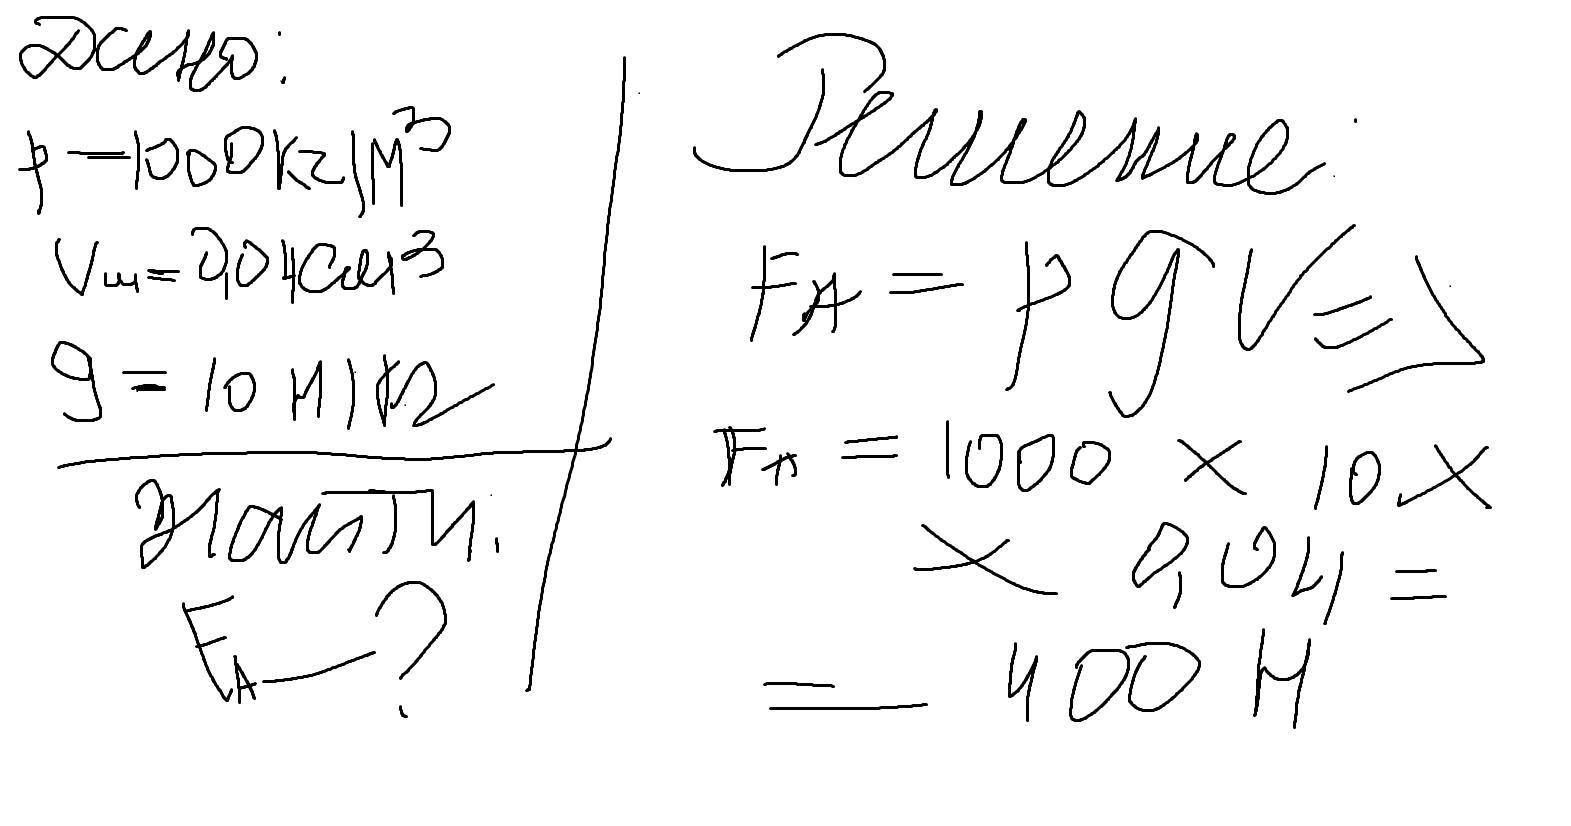 Дано:
p - 1000 кг/м³
Vш = 0,04 см³
g = 10 Н/кг
Найти.
FA - ?
Решение:
FA = p g V =>
FA = 1000 x 10 x
x 0,04 =
= 400 Н